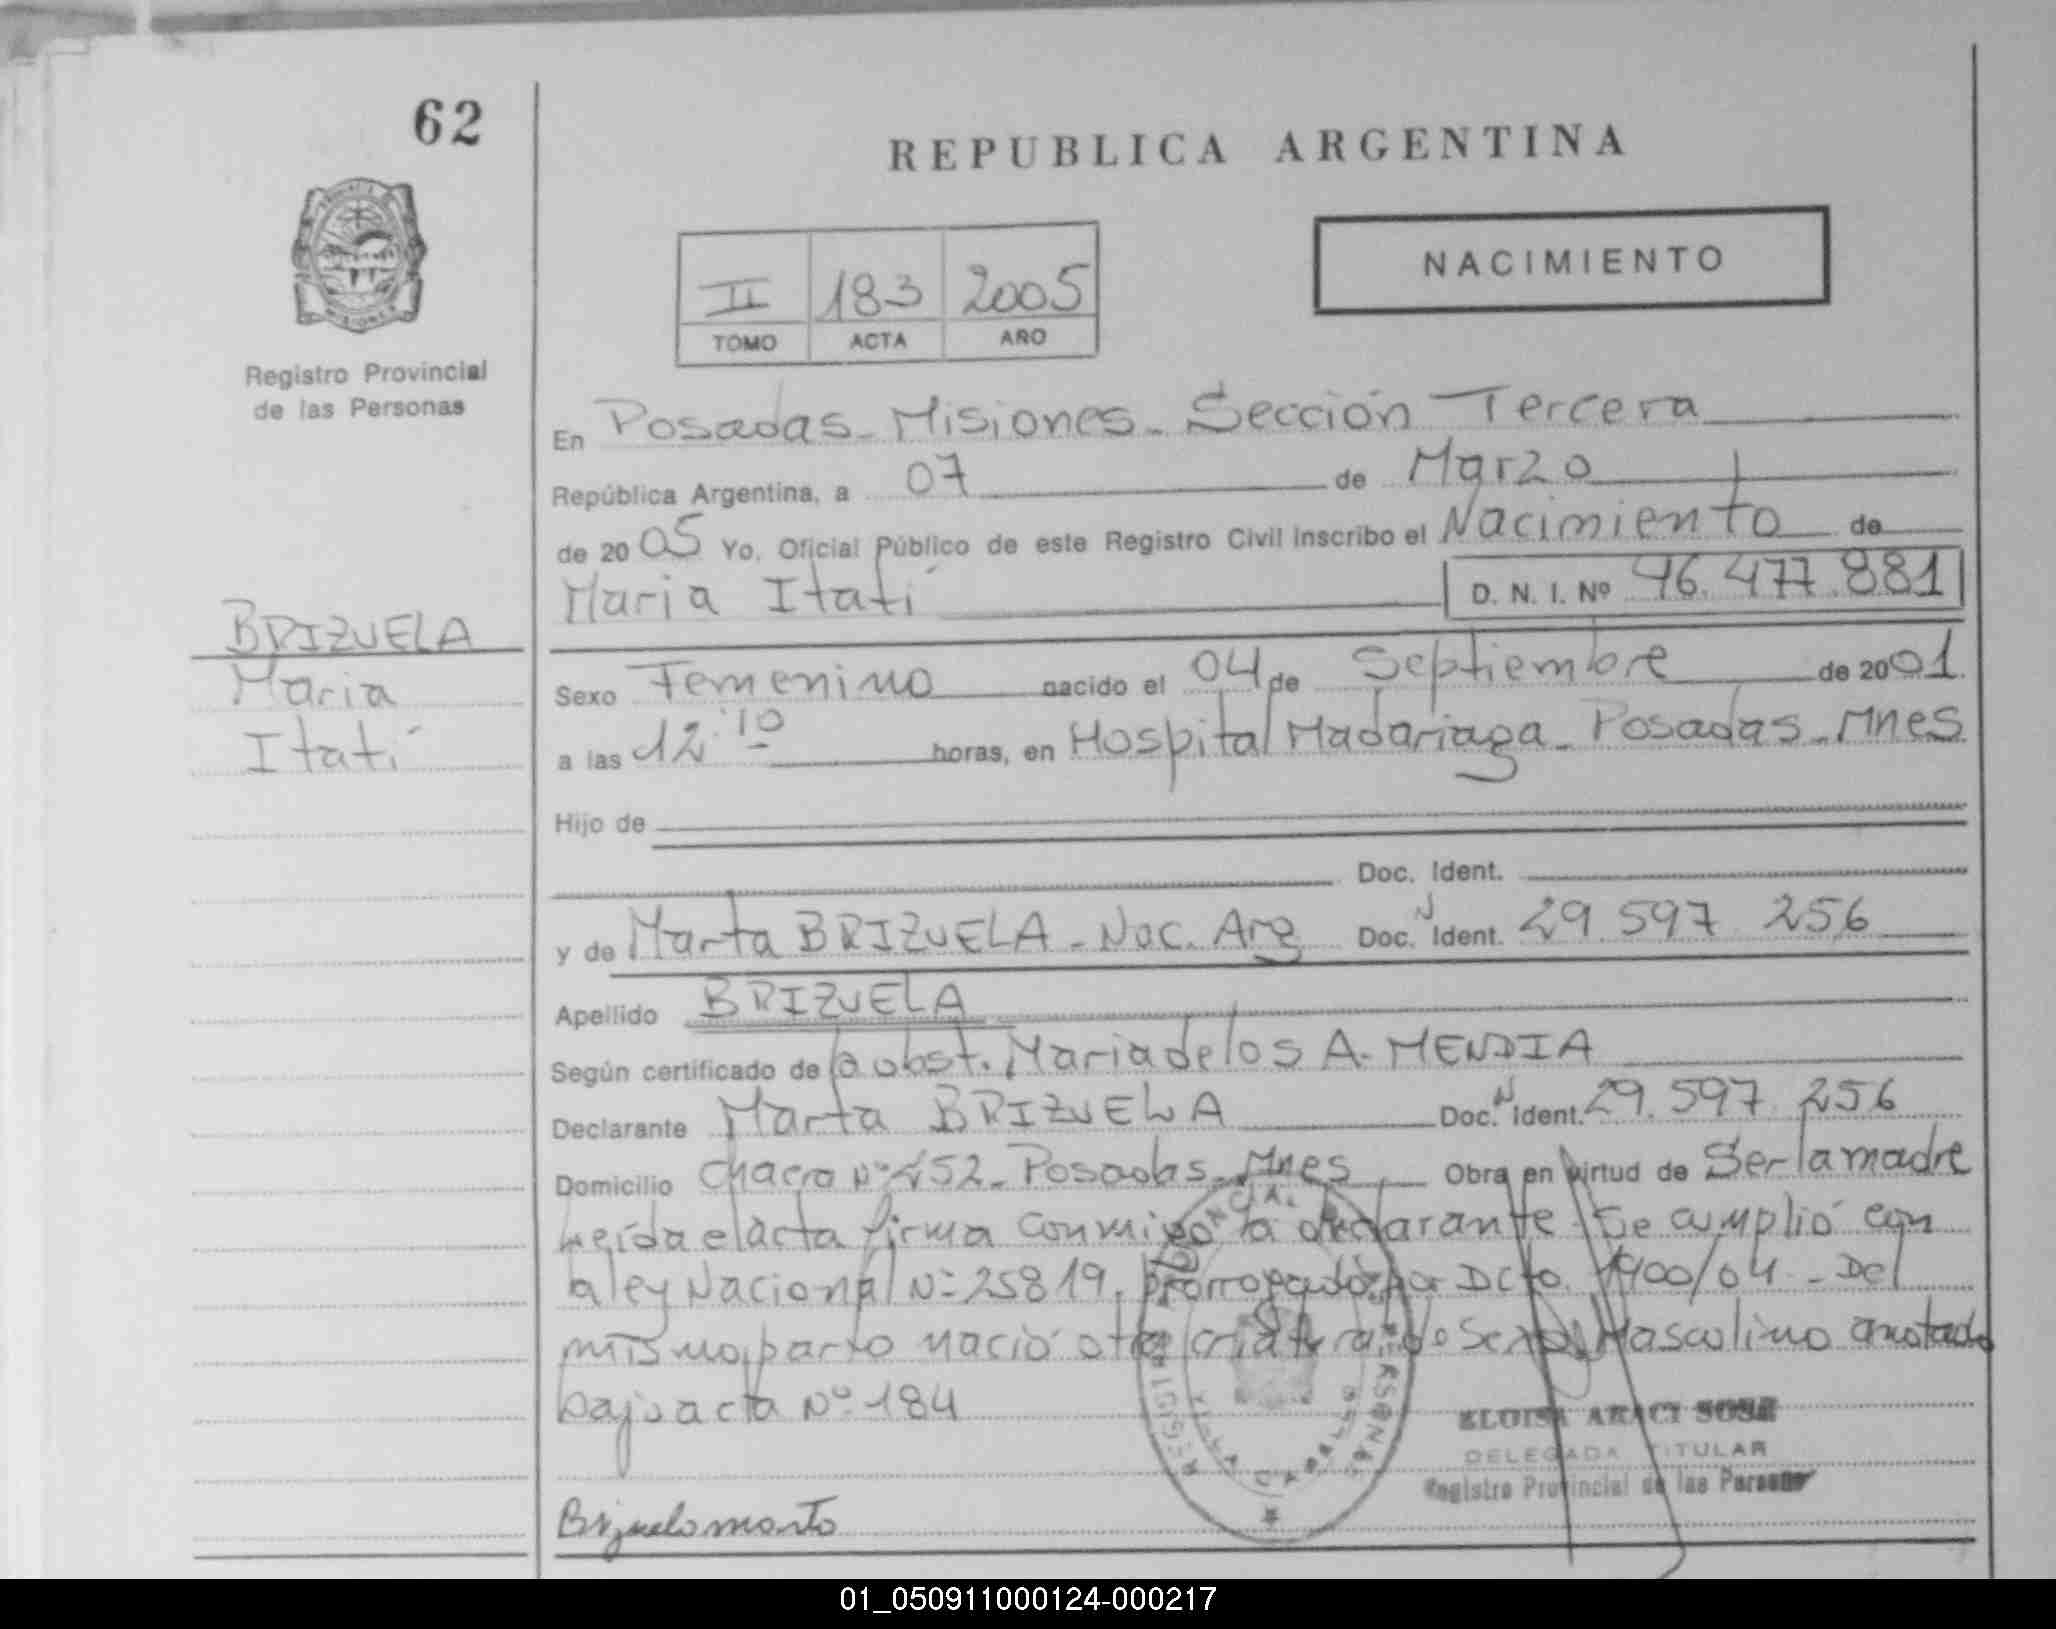 62
REPUBLICA ARGENTINA
NACIMIENTO
II 183 2005
TOMO ACTA AÑO
Registro Provincial
de las Personas
En Posadas - Misiones - Sección Tercera
República Argentina, a 07 de Marzo
de 2005 Yo, Oficial Público de este Registro Civil inscribo el Nacimiento de
Maria Itatí D. N. I. Nº 46.477.881
BRIZUELA
Maria
Itatí
Sexo Femenino nacido el 04 de Septiembre de 2001
a las 12:10 horas, en Hospital Madariaga - Posadas - Mnes
Hijo de
Doc. Ident.
y de Marta BRIZUELA - Nac. Arg Doc. N Ident. 29.597.256
Apellido BRIZUELA
Según certificado de la obst. Maria de los A. MENDIA
Declarante Marta BRIZUELA Doc. N Ident. 29.597.256
Domicilio Chacra Nº 252 - Posadas - Mnes Obra en virtud de Ser la madre
Leída el acta firma conmigo la declarante Se cumplió con
la ley Nacional Nº 25819, prorrogado por Dcto. 1900/04 - Del
mismo parto nació otra criatura de Sexo Masculino anotado
bajo acta Nº 184
ELOISA ARACI SOSA
DELEGADA TITULAR
Registro Provincial de las Personas
Brizuela marta
01_050911000124-000217